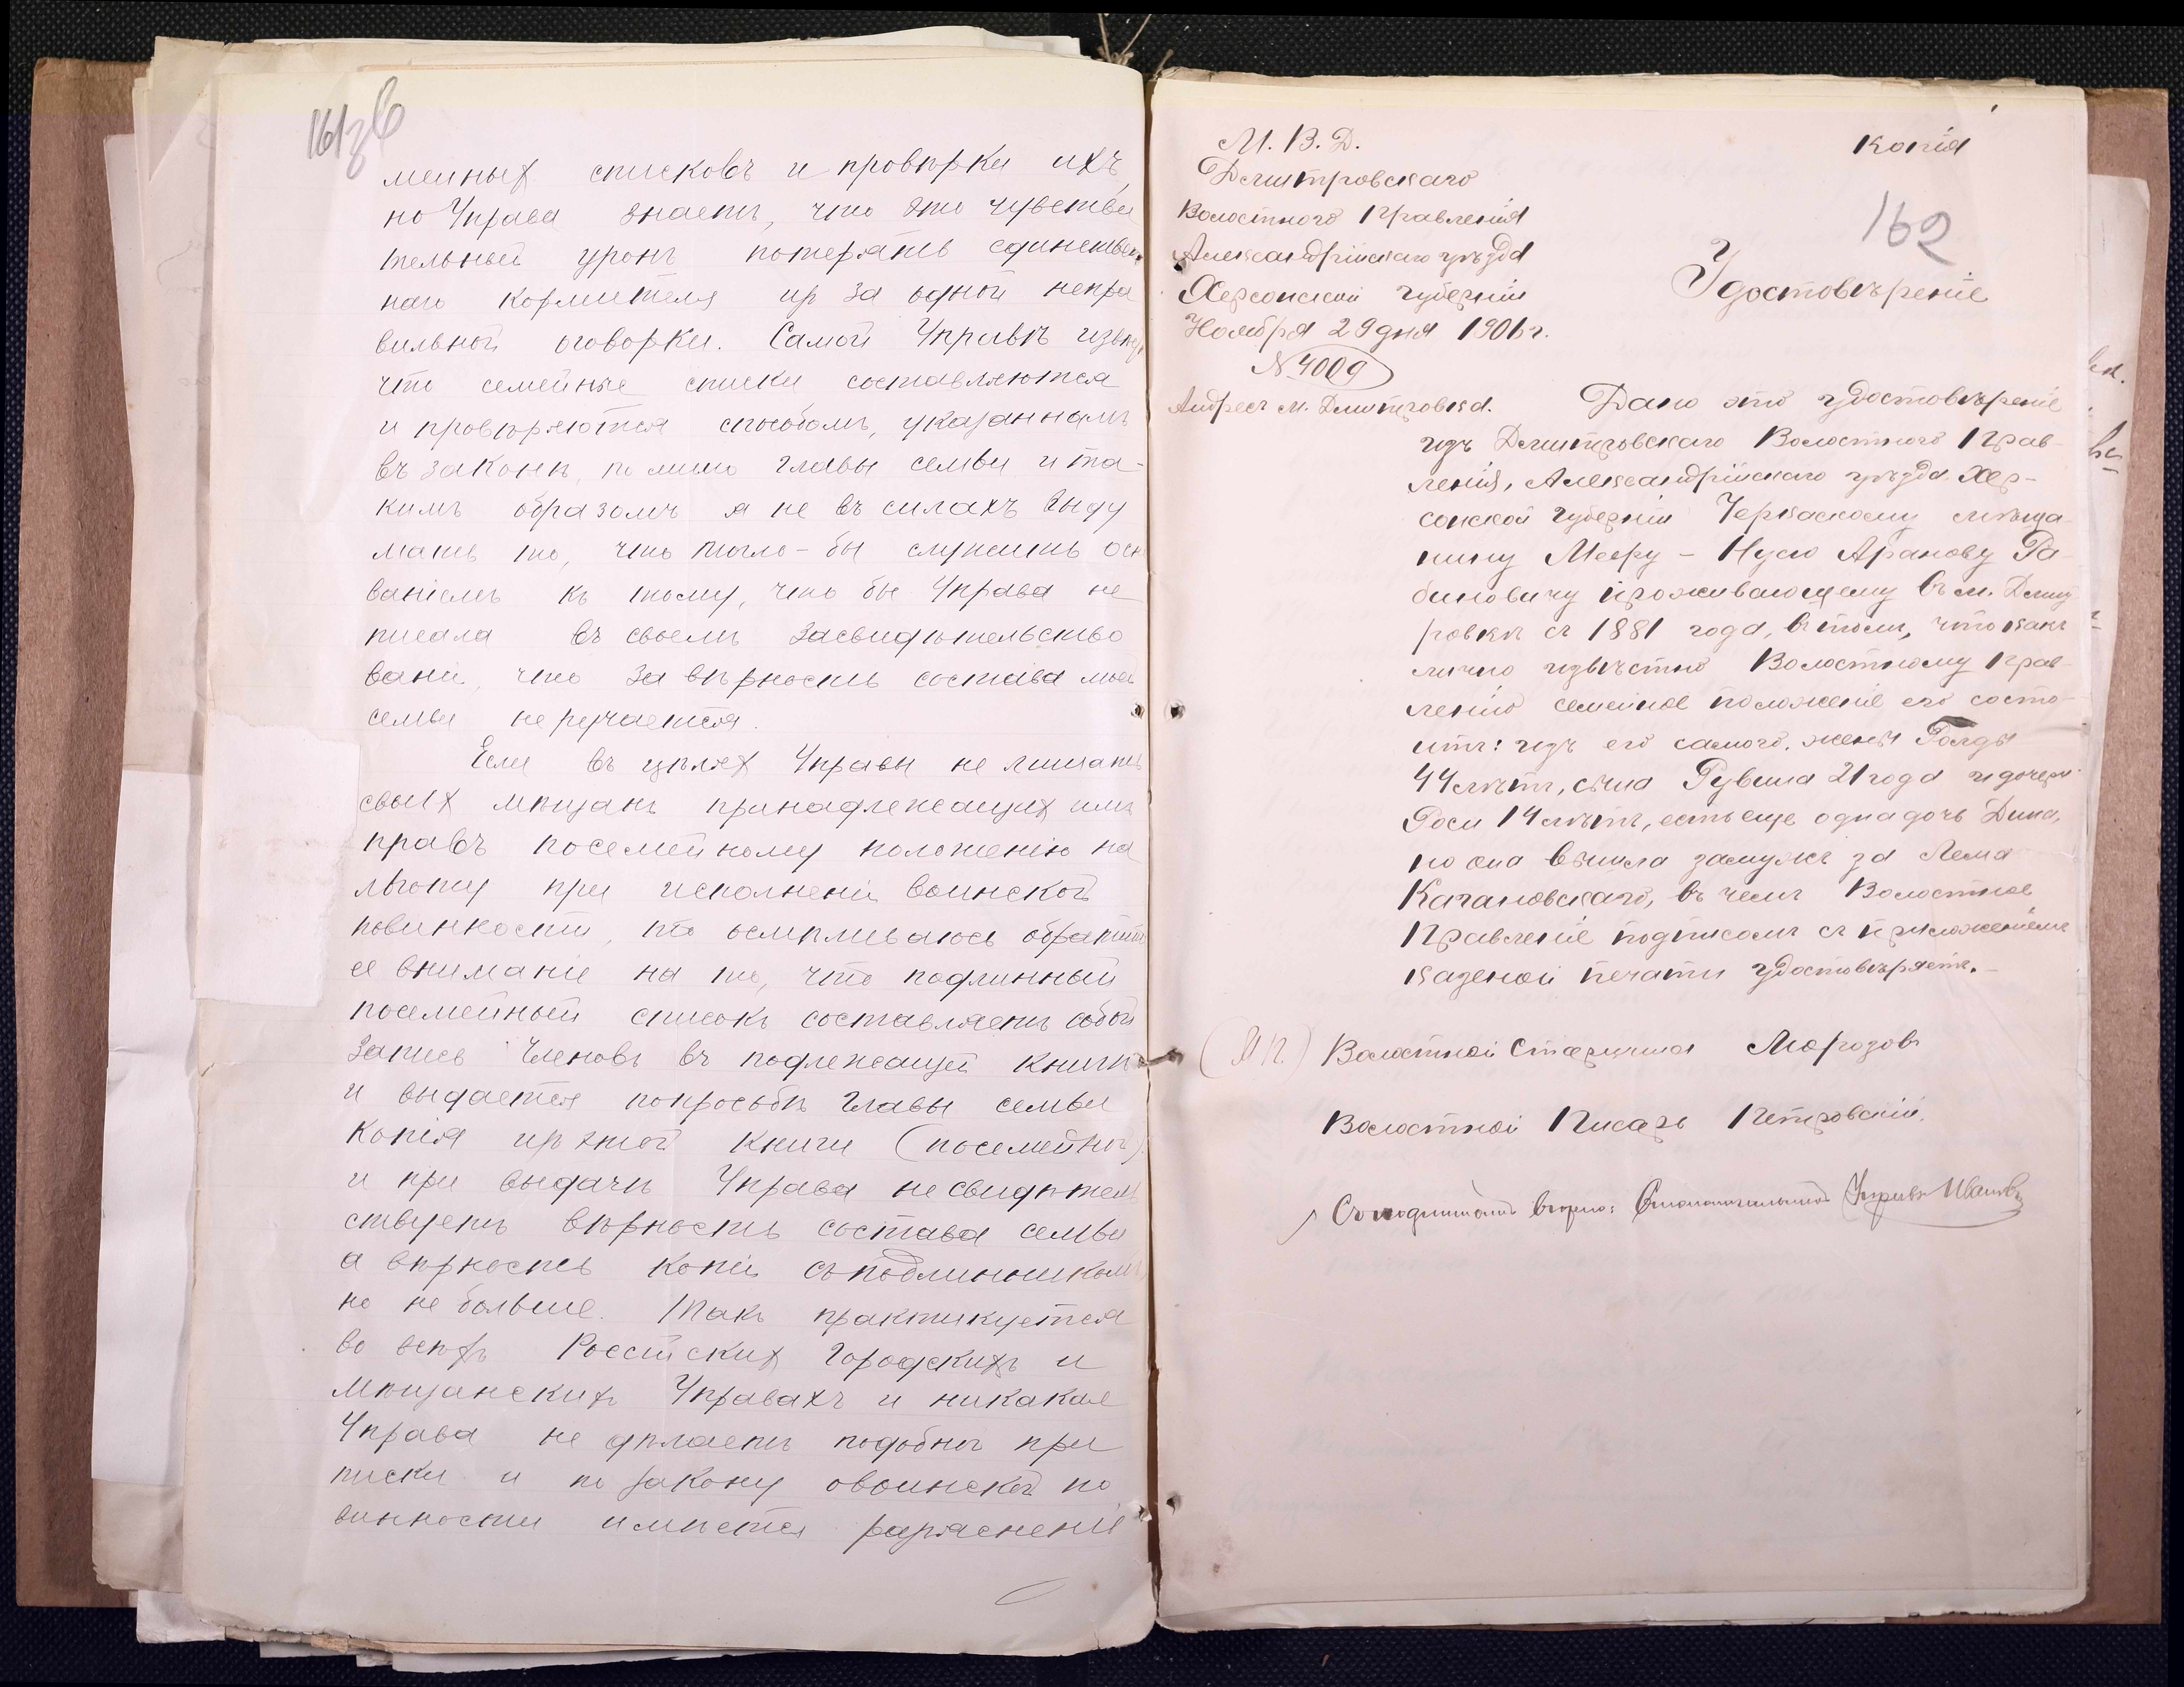 161 зв
мейныхъ списковъ и провѣрки ихъ,
но Управа знаетъ, что это чувстви
тельный уронъ потерять единствен
наго кормителя из за одной непра
вильной оговорки. Самой Управѣ извѣ
что семейные списки составляются
и провѣряются способомъ, указаннымъ
въ законѣ, помимо главы семьи и та-
кимъ образомъ я не въ силахъ выду
мать то, что могло-бы служить осн
ваніемъ къ тому, что бы Управа не
писала въ своемъ засвидѣтельство
вани, что за вѣрность состава моей
семьи неручается.
Если въ цѣляхъ Управы не лишать
своихъ мѣщанъ принадлежащихъ имъ
правъ посемейному положенію на
льготу при исполнени воинской
повинности, то осмѣливаюсь обратить
ея вниманіе на то, что подлинный
посемейный списокъ составляетъ собой
запись членовъ въ подлежащей книгѣ
и выдается попросьбѣ главы семьи
копія изъ этой книги (посемейной)
и при выдачѣ Управа несвидѣтель
ствуетъ вѣрность состава семьи
а вѣрность копіи съподлинникомъ,
но не больше. Такъ практикуется
во всѣхъ Россійскихъ городскихъ и
мѣщанскихъ Управахъ и никакая
Управа не дѣлаетъ подобной при
писки и по закону овоинской по
винности имѣется разясненіе
М. В. Д.
Дмитровскаго
Волостного Правленія
Александрійскаго уѣзда
Херсонской губерніи
Ноября 29 дня 1906 г.
№ 4009
Адресъ м. Дмитровка.
Копія
162
Удостовѣреніе
Дано это удостовѣреніе
изъ Дмитровскаго Волостного Прав-
ленія, Александрійскаго уѣзда Хер-
сонской губерніи Черкаскому мѣща-
нину Мееру-Нусю Аранову Ра-
биновичу проживающему въ м. Дмит
ровкѣ съ 1881 года, въ томъ, что какъ
лично извѣстно Волостному Прав-
ленію семейное положеніе его состо-
итъ: изъ его самого, жены Голды
44 лѣтъ, сына Рувина 21 года и дочери
Роси 14 лѣтъ, есть еще одна дочь Дина,
но она вышла замужъ за Лема
Кагановскаго, въ чемъ Волостное
Правленіе подписомъ съ приложеніемъ
казеной печати удостовѣряетъ.-
(М.П.) Волостной Старшина Морозовъ
Волостной Писарь Петровскій.
Съ подлиннымъ вѣрно: Управы Ивановъ